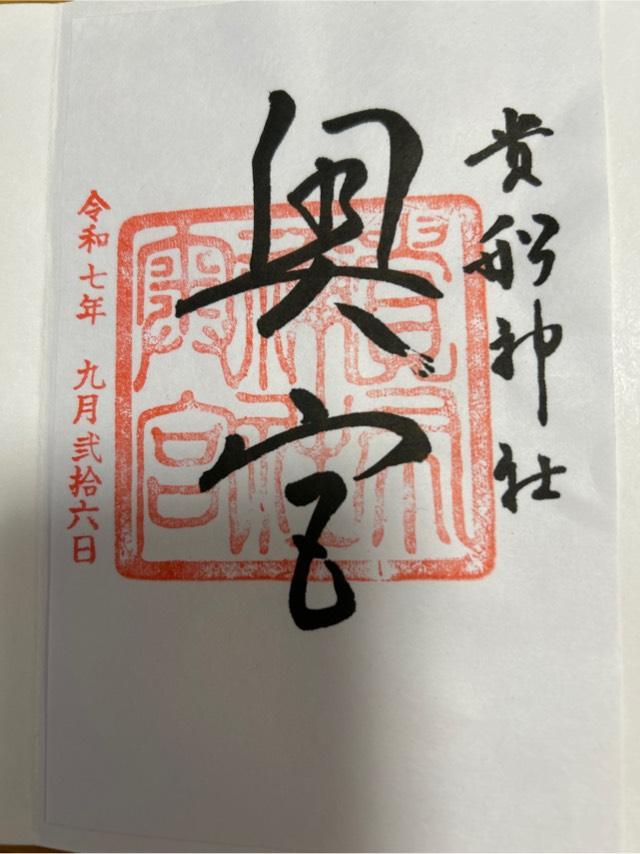 貴船神社
奥宮
令和七年 九月弐拾六日